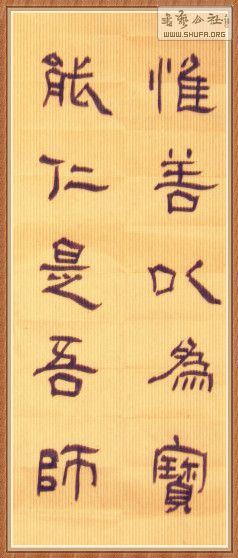 惟善㠯為寶
能仁是吾師
書藝公社
WWW.SHUFA.ORG